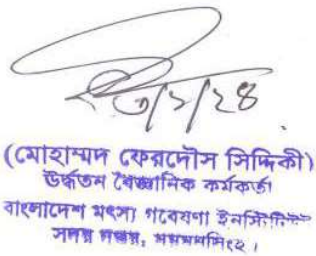 ২৩/১/২৪
(মোহাম্মদ ফেরদৌস সিদ্দিকী)
উর্দ্ধতন বৈজ্ঞানিক কর্মকর্তা
বাংলাদেশ মৎস্য গবেষণা ইনস্টিটিউট
সদর দপ্তর, ময়মনসিংহ।